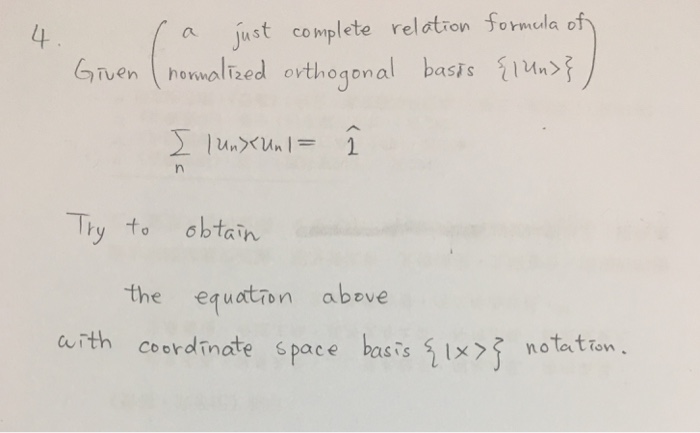 4.
Given ( a just complete relation formula of
normalized orthogonal basis {|un>} )
∑ |un><un| = 1̂
n
Try to obtain
the equation above
with coordinate space basis {|x>} notation.